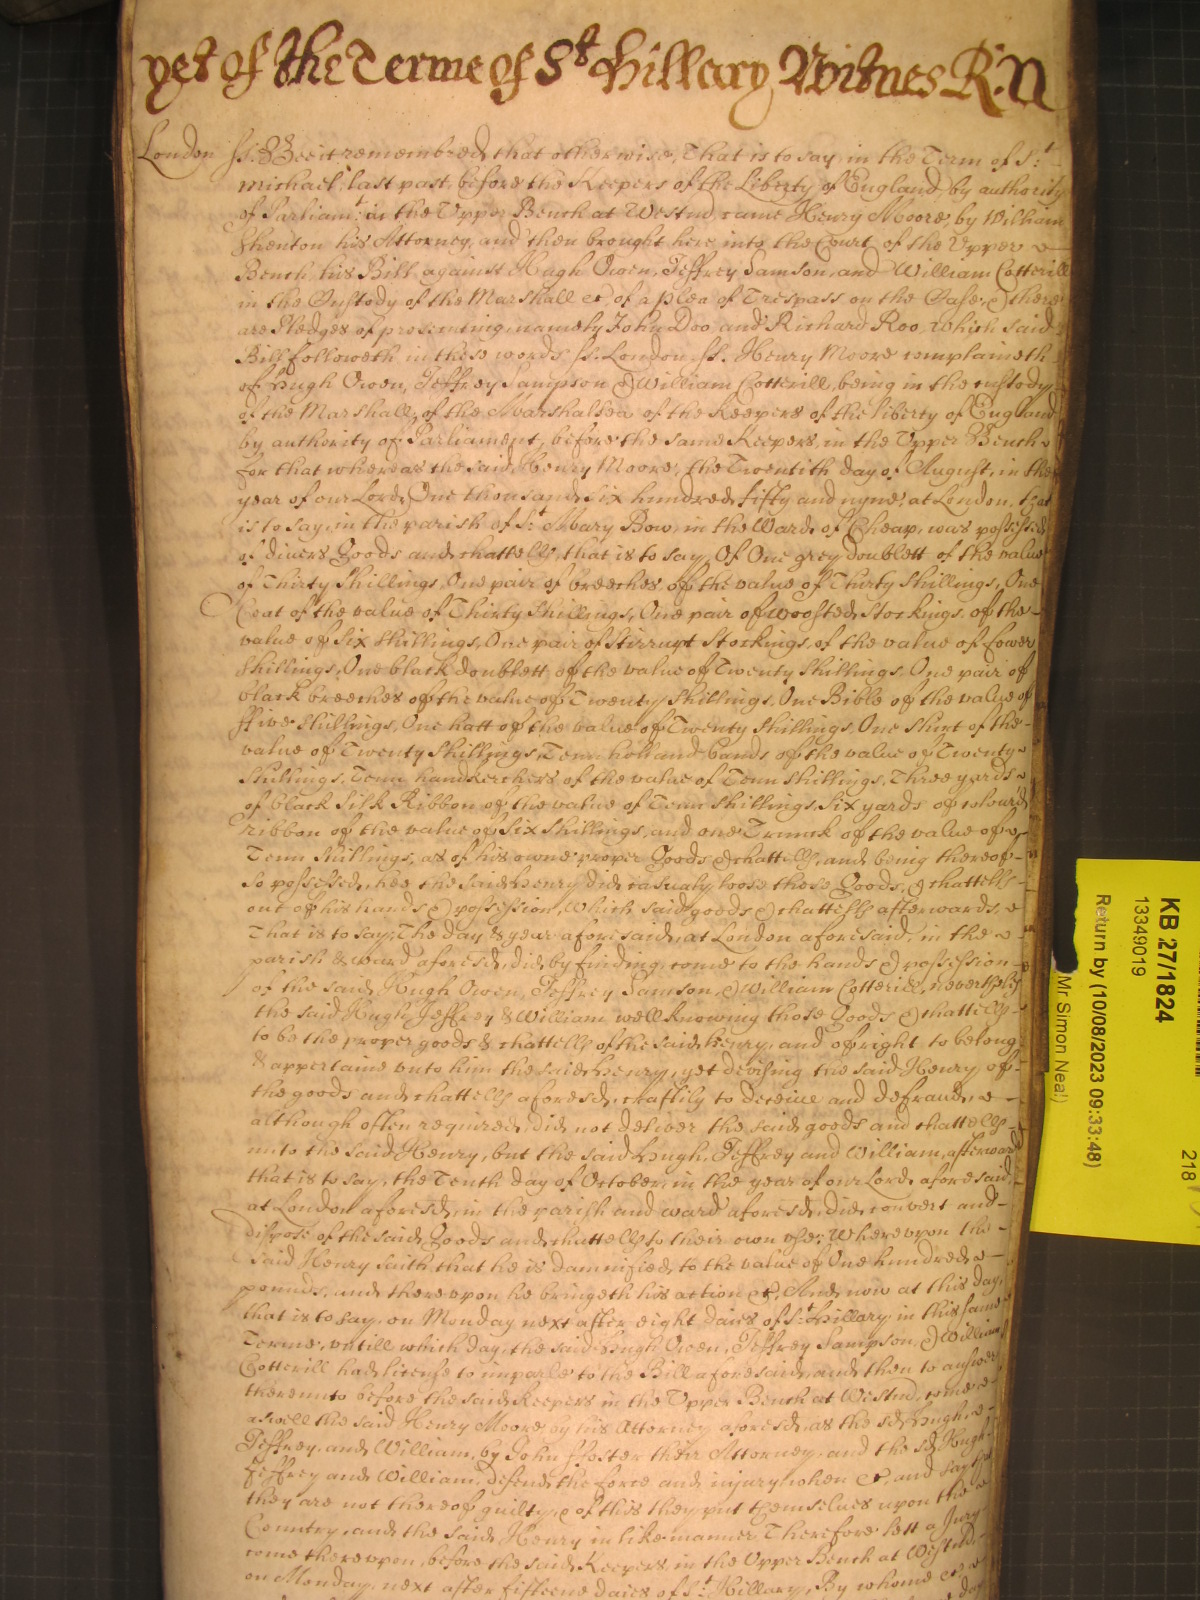 yet of the Terme of St Hillary Witnes R: N
London ss. Bee it remembred, that otherwise, That is to say, in the Term of St.
Michael, last past, before the Keepers of the Liberty of England by authority
of Parliamt: in the Upper Bench at Westmr, came Henry Moore, by William
Shenton his Attorney, and then brought here into the Court of the Upper
Bench, his Bill against Hugh Owen, Jeffrey Samson, and William Cotterill
in the Custody of the Marshall &c, of a plea of Trespass on the Case, & there
are Pledges of prosecuting, namely John Doo and Richard Roo, which said
Bill followeth in these words ss. London ss. Henry Moore complaineth
of Hugh Owen, Jeffrey Sampson & William Cotterill, being in the custody
of the Marshall, of the Marshalsea of the Keepers of the liberty of England
by authority of Parliament, before the same Keepers, in the Upper Bench
for that whereas the said Henry Moore, the Twentith day of August, in the
year of our Lord, One thousand, six hundred, fifty and nyne, at London, that
is to say, in the parish of St. Mary Bow, in the Ward, of Cheap, was possessed
of divers Goods and chattells, that is to say, Of One grey doublett of the value
of Thirty Shillings, One pair of breeches, of the value of Thirty Shillings, One
Coat of the value of Thirty Shillings, One pair of woosted, Stockings, of the
value of Six Shillings, One pair of Stirrupt Stockings, of the value of fower
Shillings, One black doublett, of the value of Twenty Shillings, One pair of
black breeches of the value of Twenty Shillings, One Bible of the value of
ffive Shillings, One hatt of the value of Twenty Shillings, One Shirt of the
value of Twenty Shillings, Tenn holland bands of the value of Twenty
Shillings, Tenn handkerchers of the value of Tenn Shillings, Three yards
of black Silk Ribbon of the value of Tenn Shillings, Six yards of colour'd
ribbon of the value of Six Shillings, and one Trunck of the value of
Tenn Shillings, as of his owne proper Goods & chattells, and being thereof
so possessed, hee the said Henry did, casualy, loose those Goods, & chattells
out of his hands & possession, Which said goods & chattells afterwards,
That is to say, The day & year aforesaid, at London aforesaid, in the
parish & ward aforesd, did, by finding, come to the hands & possession
of the said, Hugh Owen, Jeffrey Samson, & William Cotterill, nevertheless
the said Hugh, Jeffrey & William well knowing those Goods & chattells
to be the proper goods & chattells of the said Henry, and of right to belong
& appertaine unto him the said Henry, yet devising the said Henry of
the goods and chattells aforesd, craftily to deceive and defraud,
although often required, did, not deliver the said, goods and chattells
unto the said Henry, but the said Hugh, Jeffrey and William, afterward
that is to say, the Tenth day of October, in the year of our Lord, aforesaid,
at London aforesd, in the parish and ward aforesd, did, convert and
dispose of the said, Goods and chattells to their own use: Whereupon the
said Henry saith that he is damnified, to the value of One hundred,
pounds, and thereupon he bringeth his action &c, And, now at this day,
that is to say, on Monday next after eight daies of St. Hillary, in this same
Terme, untill which day, the said Hugh Owen, Jeffrey Sampson, & William
Cotterill had, license to imparle to the Bill aforesaid, and then to answer
thereunto before the said, Keepers in the Upper Bench at Westmr, come
aswell the said Henry Moore by his Attorney aforesd, as the sd Hugh,
Jeffrey, and William, by John ffoster their Attorney, and the sd Hugh
Jeffrey and William, defend, the force and injury when &c, and say that
they are not thereof guilty, & of this they put themselves upon the
Country, and the said, Henry in like manner Therefore lett a Jury
come thereupon, before the said, Keepers, in the Upper Bench at Westmr,
on Monday, next after fifteene daies of St. Hillary, By whome &c
KB 27/1824
13349019
Return by (10/08/2023 09:33:48)
Mr Simon Neal)
218